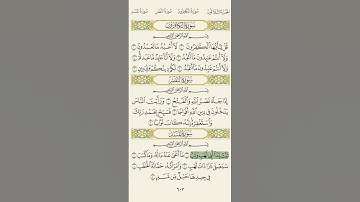 الجزء الثلاثون سورة الكافرون سورة النصر سورة المسد
سُورَةُ الكَافِرُونَ
بِسْمِ ٱللَّهِ ٱلرَّحْمَٰنِ ٱلرَّحِيمِ
قُلْ يَٰٓأَيُّهَا ٱلْكَٰفِرُونَ ١ لَآ أَعْبُدُ مَا تَعْبُدُونَ ٢
وَلَآ أَنتُمْ عَٰبِدُونَ مَآ أَعْبُدُ ٣ وَلَآ أَنَا۠ عَابِدٌ مَّا عَبَدتُّمْ ٤
وَلَآ أَنتُمْ عَٰبِدُونَ مَآ أَعْبُدُ ٥ لَكُمْ دِينُكُمْ وَلِىَ دِينِ ٦
سُورَةُ النَّصْرِ
بِسْمِ ٱللَّهِ ٱلرَّحْمَٰنِ ٱلرَّحِيمِ
إِذَا جَآءَ نَصْرُ ٱللَّهِ وَٱلْفَتْحُ ١ وَرَأَيْتَ ٱلنَّاسَ
يَدْخُلُونَ فِى دِينِ ٱللَّهِ أَفْوَاجًا ٢ فَسَبِّحْ بِحَمْدِ رَبِّكَ
وَٱسْتَغْفِرْهُ إِنَّهُۥ كَانَ تَوَّابًۢا ٣
سُورَةُ المَسَدِ
بِسْمِ ٱللَّهِ ٱلرَّحْمَٰنِ ٱلرَّحِيمِ
تَبَّتْ يَدَآ أَبِى لَهَبٍ وَتَبَّ ١ مَآ أَغْنَىٰ عَنْهُ مَالُهُۥ وَمَا كَسَبَ ٢
سَيَصْلَىٰ نَارًا ذَاتَ لَهَبٍ ٣ وَٱمْرَأَتُهُۥ حَمَّالَةَ ٱلْحَطَبِ ٤
فِى جِيدِهَا حَبْلٌ مِّن مَّسَدٍۭ ٥
٦٠٣